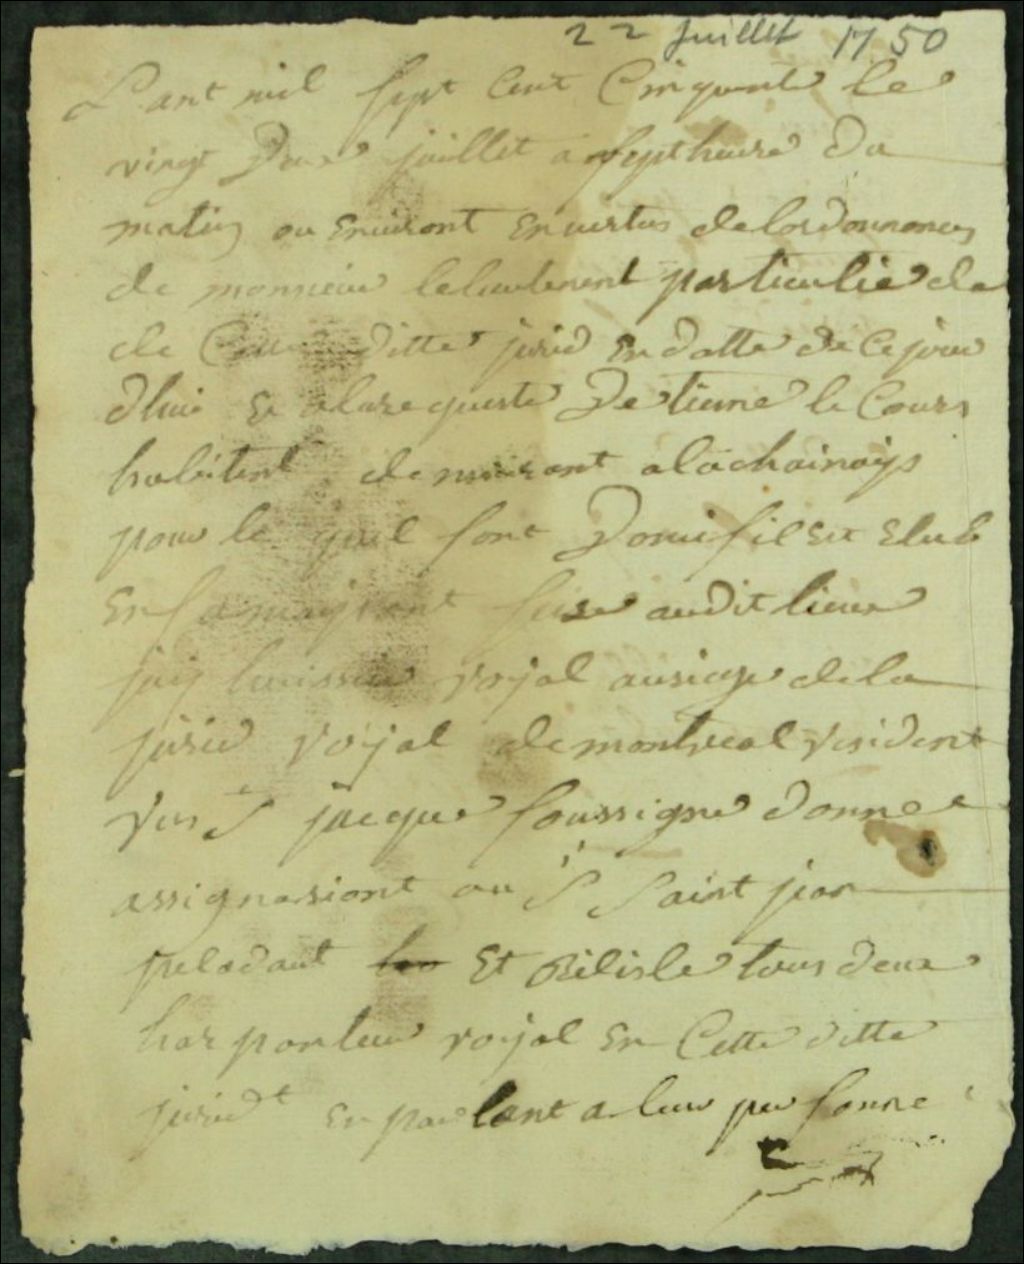 22 Juillet 1750
L'ant mil sept Cent Cinquante le
vingt Deux juillet a septheure Du
matin ou Environt En vertus de lordonnances
de monsieur lelieutenent particulié de
de Cette ditte jurid En datte de Ce jour
dhui Et alarequeste De tienne le Cours
habitent demeurant alachainays
pour le quel sont Domisil Est Elub
En sa maisont size audit lieux
jay huissier royal ausiege dela
jurid royal demontreal resident
rus St jacque soussigné donne
assignasiont au Sr Saint jean
peladaut Et Belisle tous deux
harpanteur royal En Cette ditte
juridt En parlant a leur personne